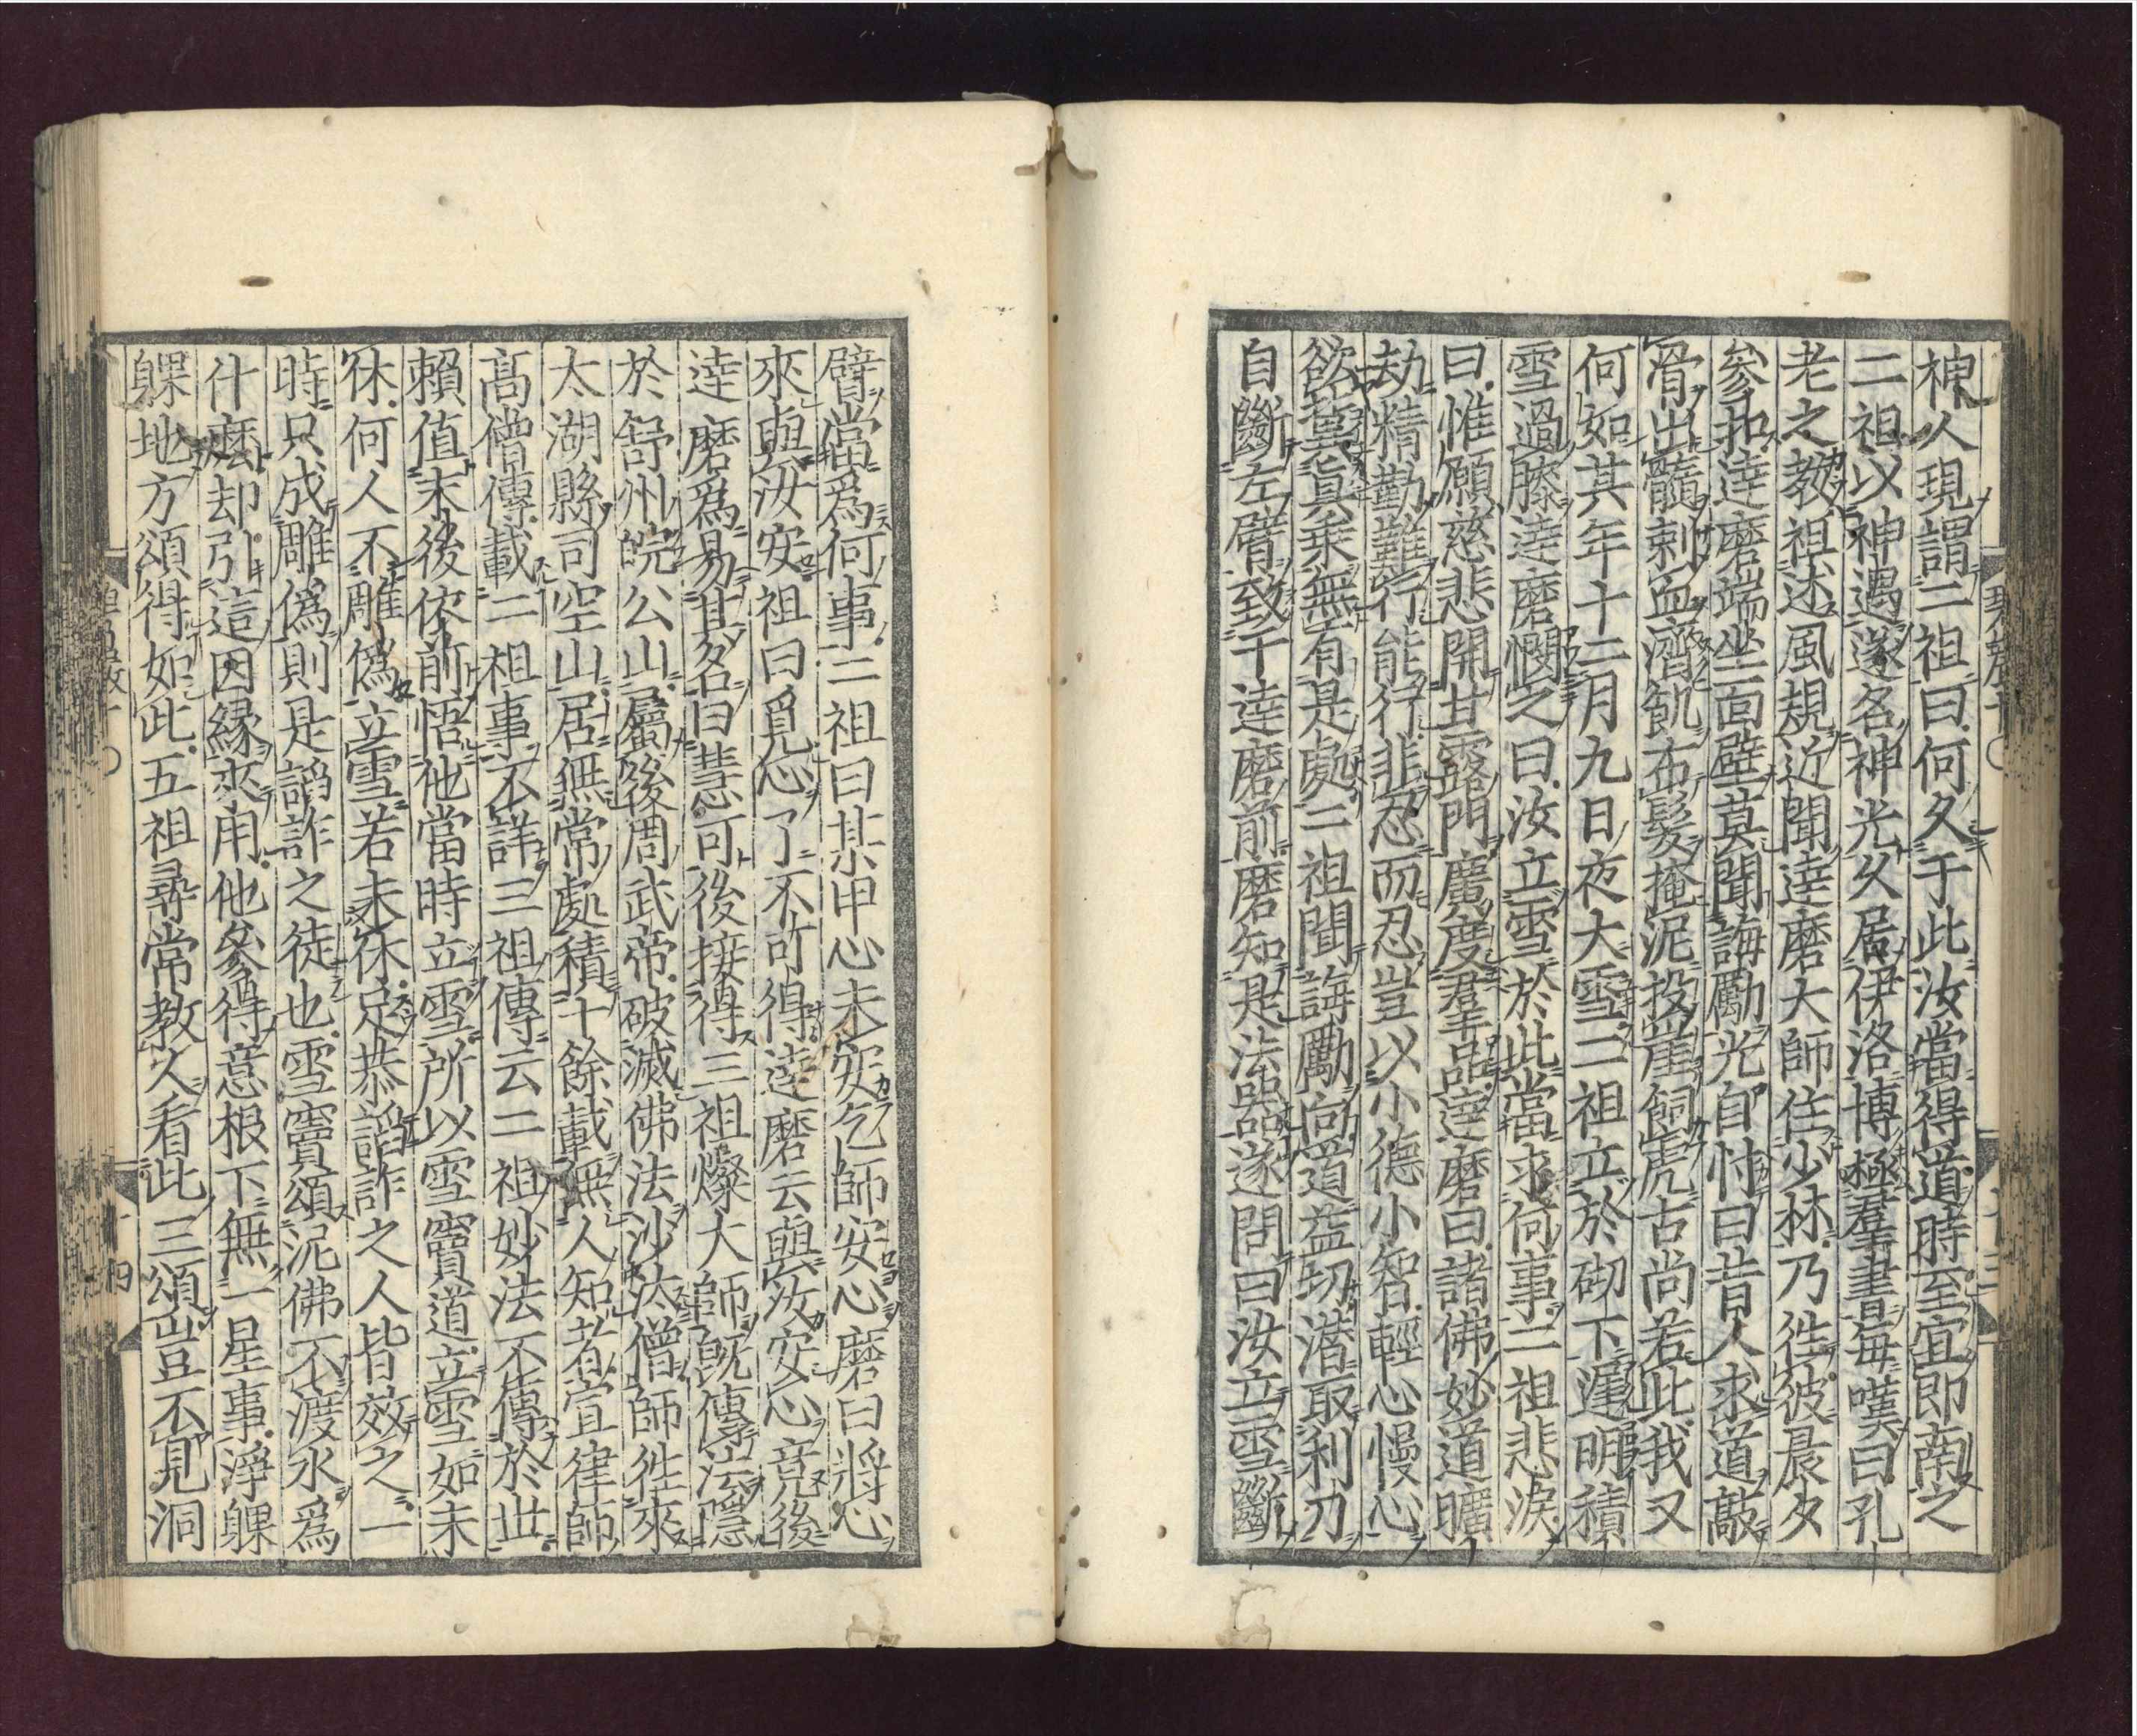 神人現謂二祖曰何久于此汝當得道時至宜即南之
二祖以神遇遂名神光久居伊洛博極羣書每嘆曰孔
老之教祖述風規近聞達磨大師住少林乃徃彼晨夕
參扣達磨端坐面壁莫聞誨勵光自忖曰昔人求道敲
骨出髓刺血濟飢布髮掩泥投崖飼虎古尚若此我又
何如其年十二月九日夜大雪二祖立於砌下遲明積
雪過膝達磨憫之曰汝立雪於此當求何事二祖悲淚
曰惟願慈悲開甘露門廣度羣品達磨曰諸佛妙道曠
劫精勤難行能行非忍而忍豈以小德小智輕心慢心
欲冀眞乘無有是處二祖聞誨勵向道益切潛取利刀
自斷左臂致于達磨前磨知是法器遂問曰汝立雪斷
臂當爲何事二祖曰某甲心未安乞師安心磨曰將心
來與汝安祖曰覓心了不可得達磨云與汝安心竟後
達磨爲易其名曰慧可後接得三祖燦大師既傳法隱
於舒州皖公山屬後周武帝破滅佛法沙汰僧師徃來
太湖縣司空山居無常處積十餘載無人知者宣律師
高僧傳載二祖事不詳三祖傳云二祖妙法不傳於世
賴值末後依前悟他當時立雪所以雪竇道立雪如未
休何人不雕偽立雪若未休足恭諂詐之人皆效之一
時只成雕偽則是諂詐之徒也雪竇頌泥佛不渡水爲
什麽却引這因緣來用他參得意根下無一星事淨躶
躶地方頌得如此五祖尋常教人看此三頌豈不見洞